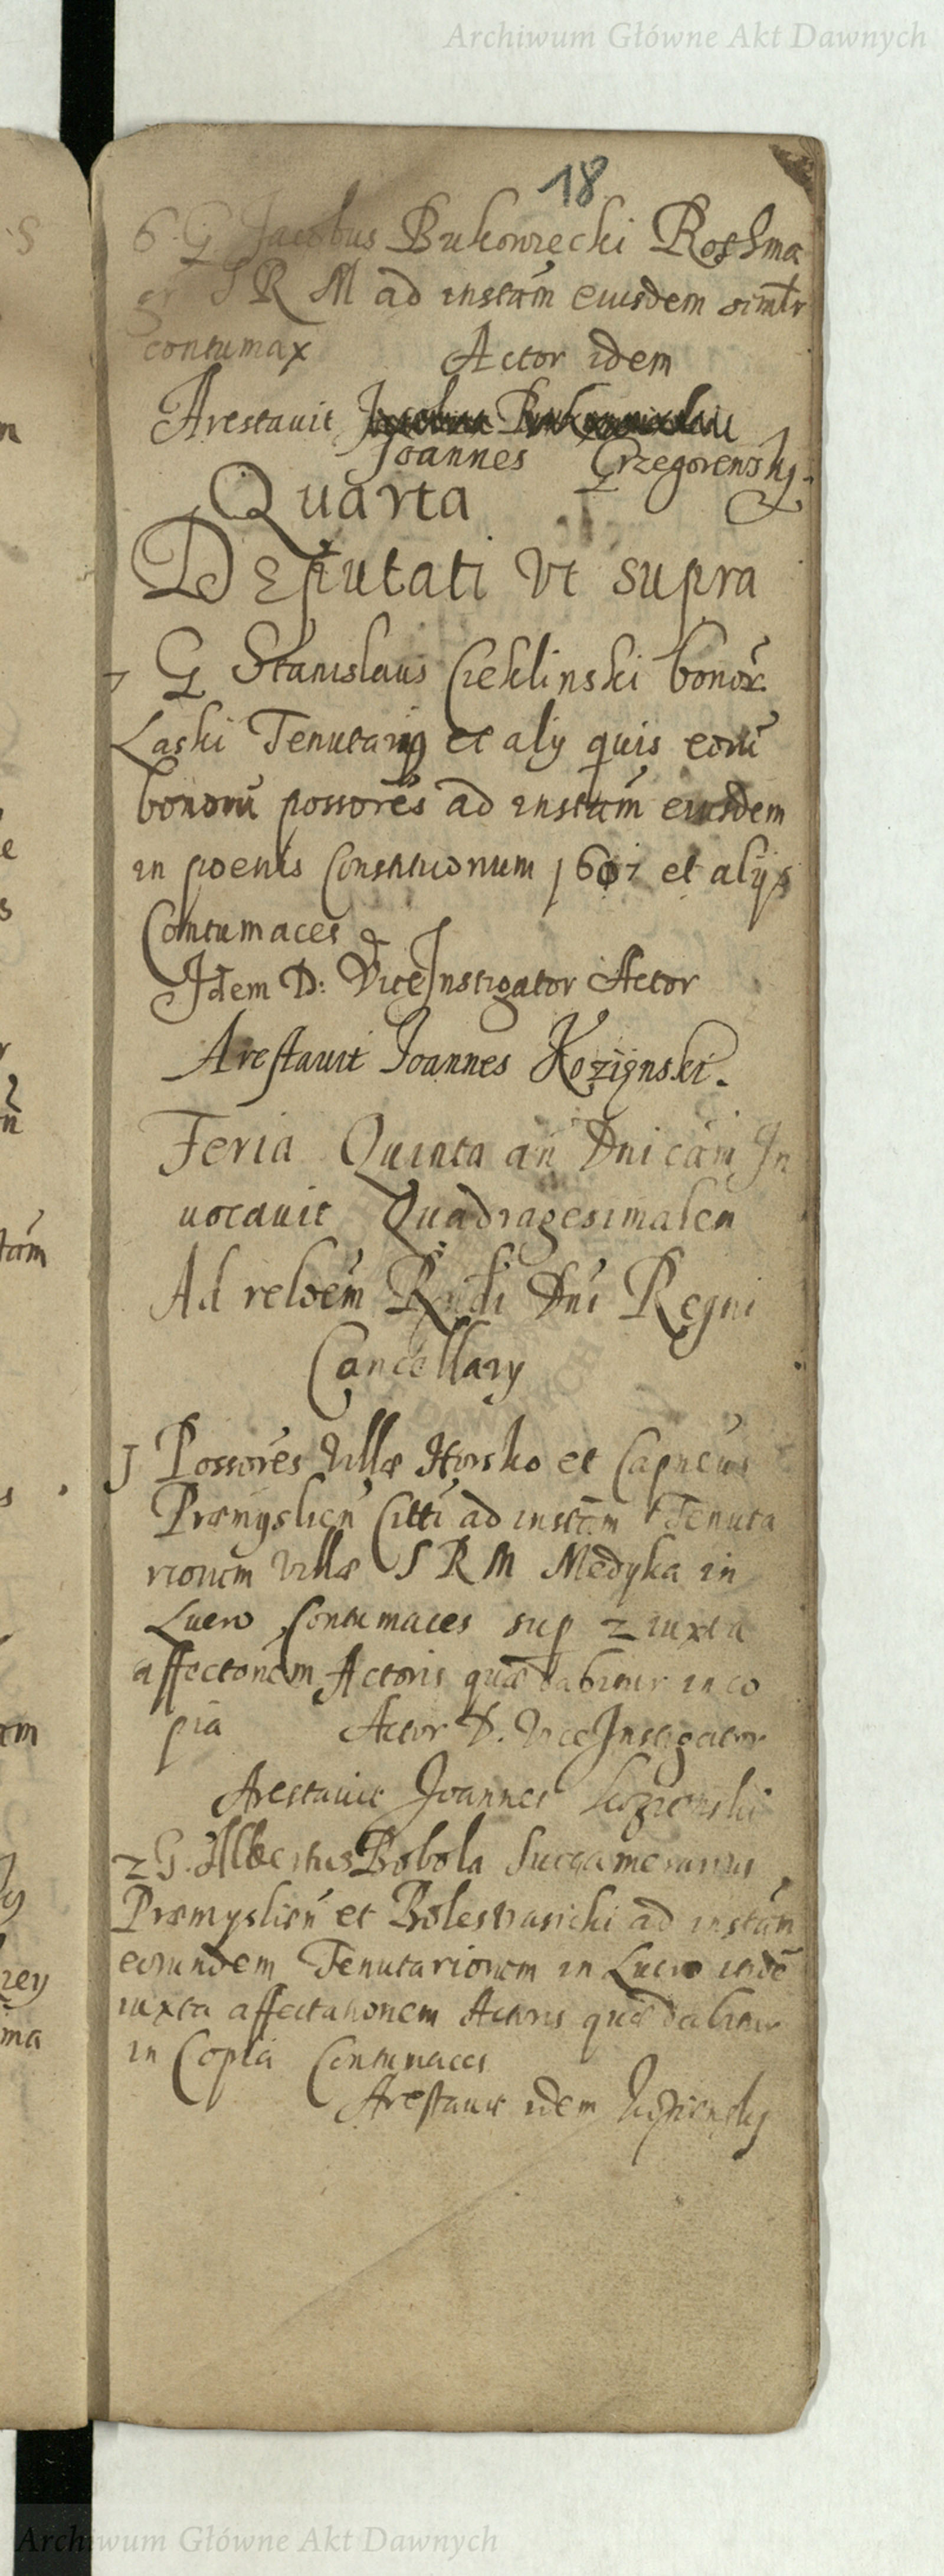 Archiwum Główne Akt Dawnych
18
6 G Jacobus Bukowiecki Rothma
gr S R M ad instam eiusdem simlr
contumax Actor idem
Arestavit
Joannes Grzegorewsky
Quarta
Deputati Vt supra
7 G Stanislaus Cieklinski bonor
Laski Tenutariq et aly quis eoru
bonoru possores ad instam eiusdem
in poenis Constitucionum 1607 et alijs
Contumaces
Idem D: ViceInstigator Actor
Arestavit Joannes Kozijnski.
Feria Quinta an Dnicam In
uocauit Quadragesimalem
Ad reloem Rndi Dni Regni
Cancellary
1 Possores Villæ Hursko et Capneus
Præmyslien Citti ad instam Tenuta
riorum Villæ S R M Medyka in
Lucro Contumaces sup 2 iuxta
affectonem Actoris quæ dabitur in co
pia Actor D. ViceInstigator
Arestavit Joannes
2 G. Albertus Bobola Succamerarius
Præmyslien et Bolestrasicki ad instam
eorundem Tenutariorum in Lucro itide
iuxta affectationem Actoris quæ dabitur
in Copia Contumaces
Arestauit idem
Archiwum Główne Akt Dawnych